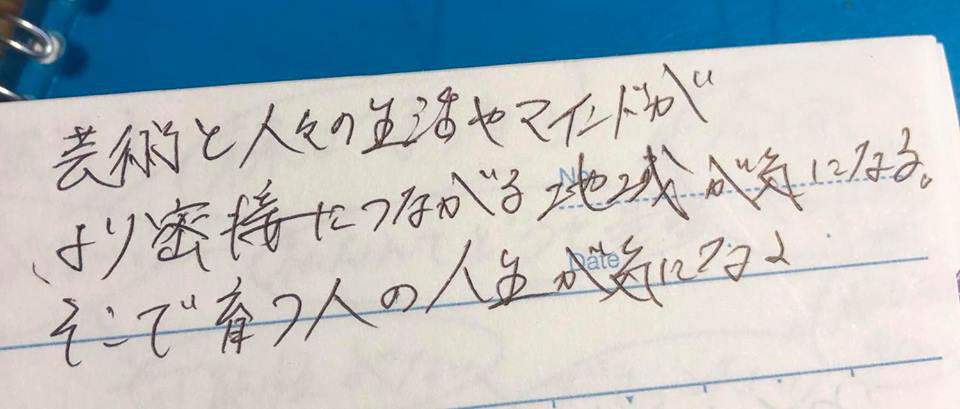 芸術と人々の生活やマインドが
より密接につながる地域が気になる。
そこで育つ人の人生が気になる
No.
Date